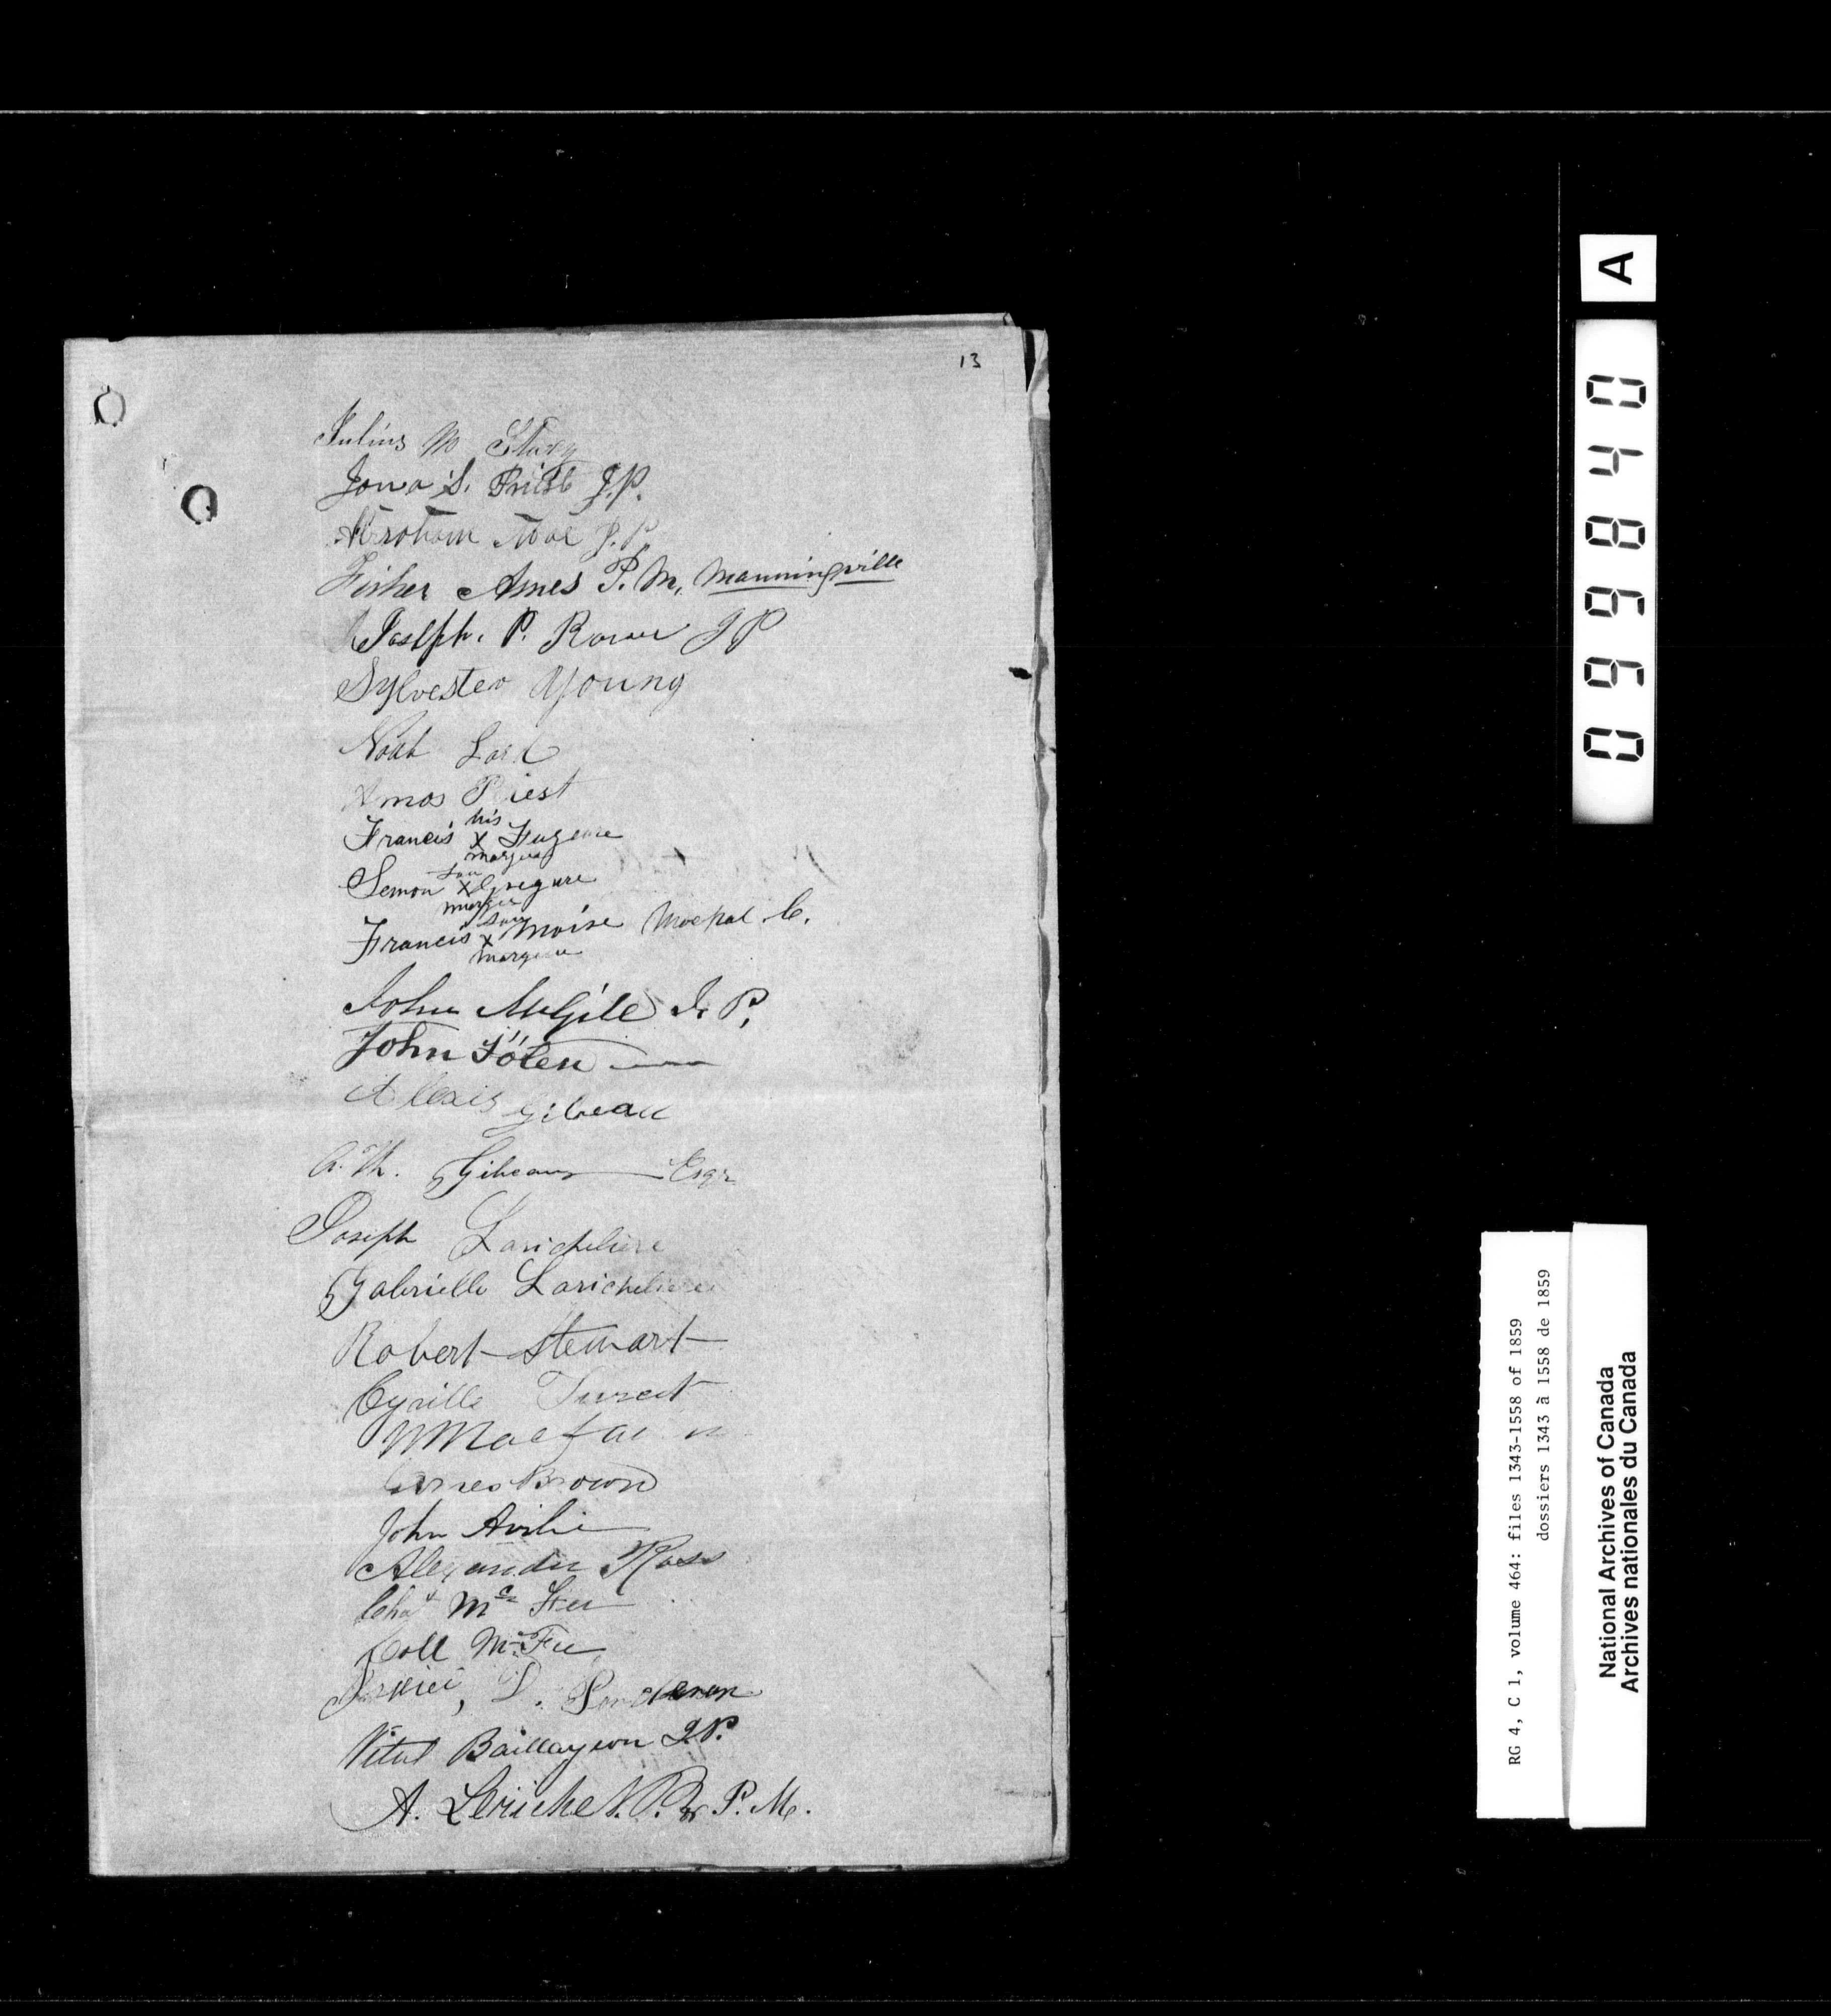 13
Julius M
Jona S. Priest J.P.
Abraham J.P.
Fisher Ames P.M. Manningville
Joseph. P. Rowe J P
Sylvester Young
Noah Lord
Amos Priest
his
Francis X Fugere
marque
son
Semon X Gregure
marque
son
Francis X Moise C.
marque
John McGill J. P.
John Foten
Alexis Gibeau
A. Th. Gibeau Esqr
Joseph Laricheliere
Gabrielle Laricheliere
Robert Stewart
Cyrille Turcot
James Brown
John
Alexander Ross
Chas McFee
Coll McFee
D.
Vital Baillargeon J.P.
A. Leriche N.P. & P.M.
A
099840
RG 4, C 1, volume 464: files 1343-1558 of 1859
dossiers 1343 à 1558 de 1859
National Archives of Canada
Archives nationales du Canada